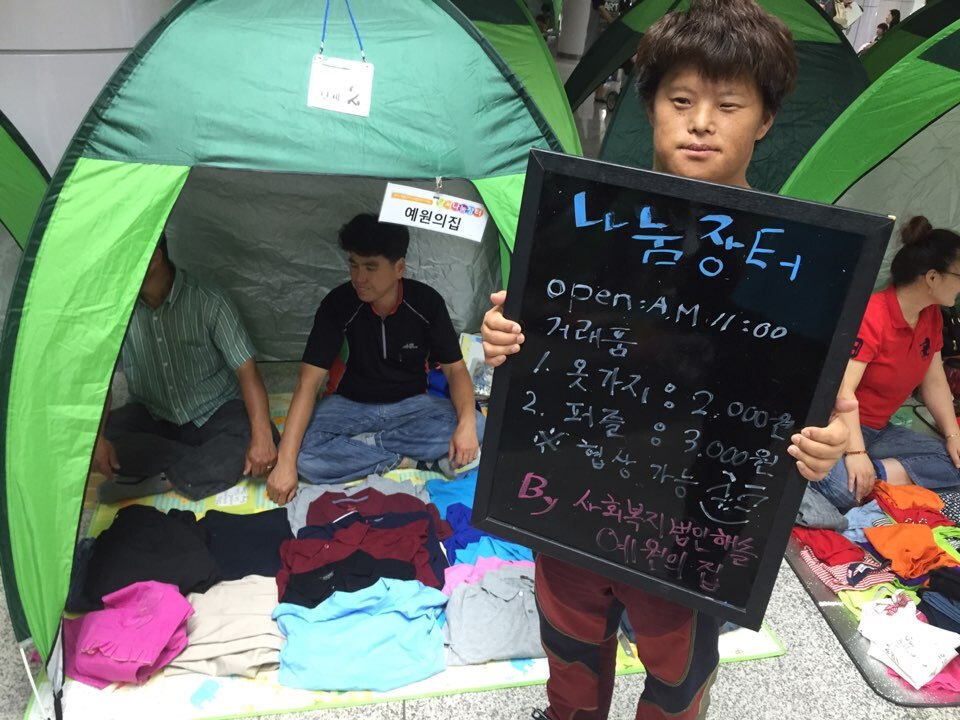 나눔장터
예원의집
나눔장터
open: A.M 11:00
거래품
1. 옷가지 : 2.000원
2. 퍼즐 : 3.000원
※ 협상 가능
By 사회복지법인해솔
예원의 집